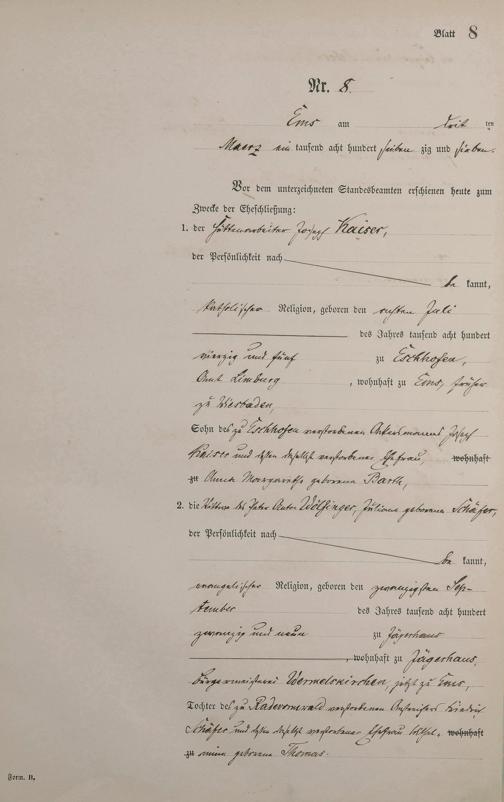 Blatt 8
Nr. 8.
Ems am ten
Maerz ein tausend acht hundert sieben zig und sieben.
Vor dem unterzeichneten Standesbeamten erschienen heute zum
Zwecke der Eheschließung:
1. der Hüttenarbeiter Joseph Kaiser,
der Persönlichkeit nach
be kannt,
katholischer Religion, geboren den Juli
des Jahres tausend acht hundert
vierzig und fünf zu Eschhofen,
Amt Limburg, wohnhaft zu Ems, früher
zu Wiesbaden,
Sohn des zu Eschhofen verstorbenen Ackersmannes Joseph
Kaiser und dessen daselbst verstorbener Ehefrau, wohnhaft
zu Anna Margarethe geborene Barth,
2. die Wittwe des Peter Anton Wölfinger, Juliane geborene Schäfer,
der Persönlichkeit nach
be kannt,
evangelischer Religion, geboren den zwanzigsten Sep-
tember des Jahres tausend acht hundert
zwanzig und neun zu Jägerhaus
, wohnhaft zu Jägerhaus,
Bürgermeisterei Wermelskirchen, jetzt zu Ems,
Tochter des zu Radevormwald verstorbenen Friedrich
Schäfer und dessen daselbst verstorbener Ehefrau Wilhel- wohnhaft
zu mine geborene Thomas.
Form. B.